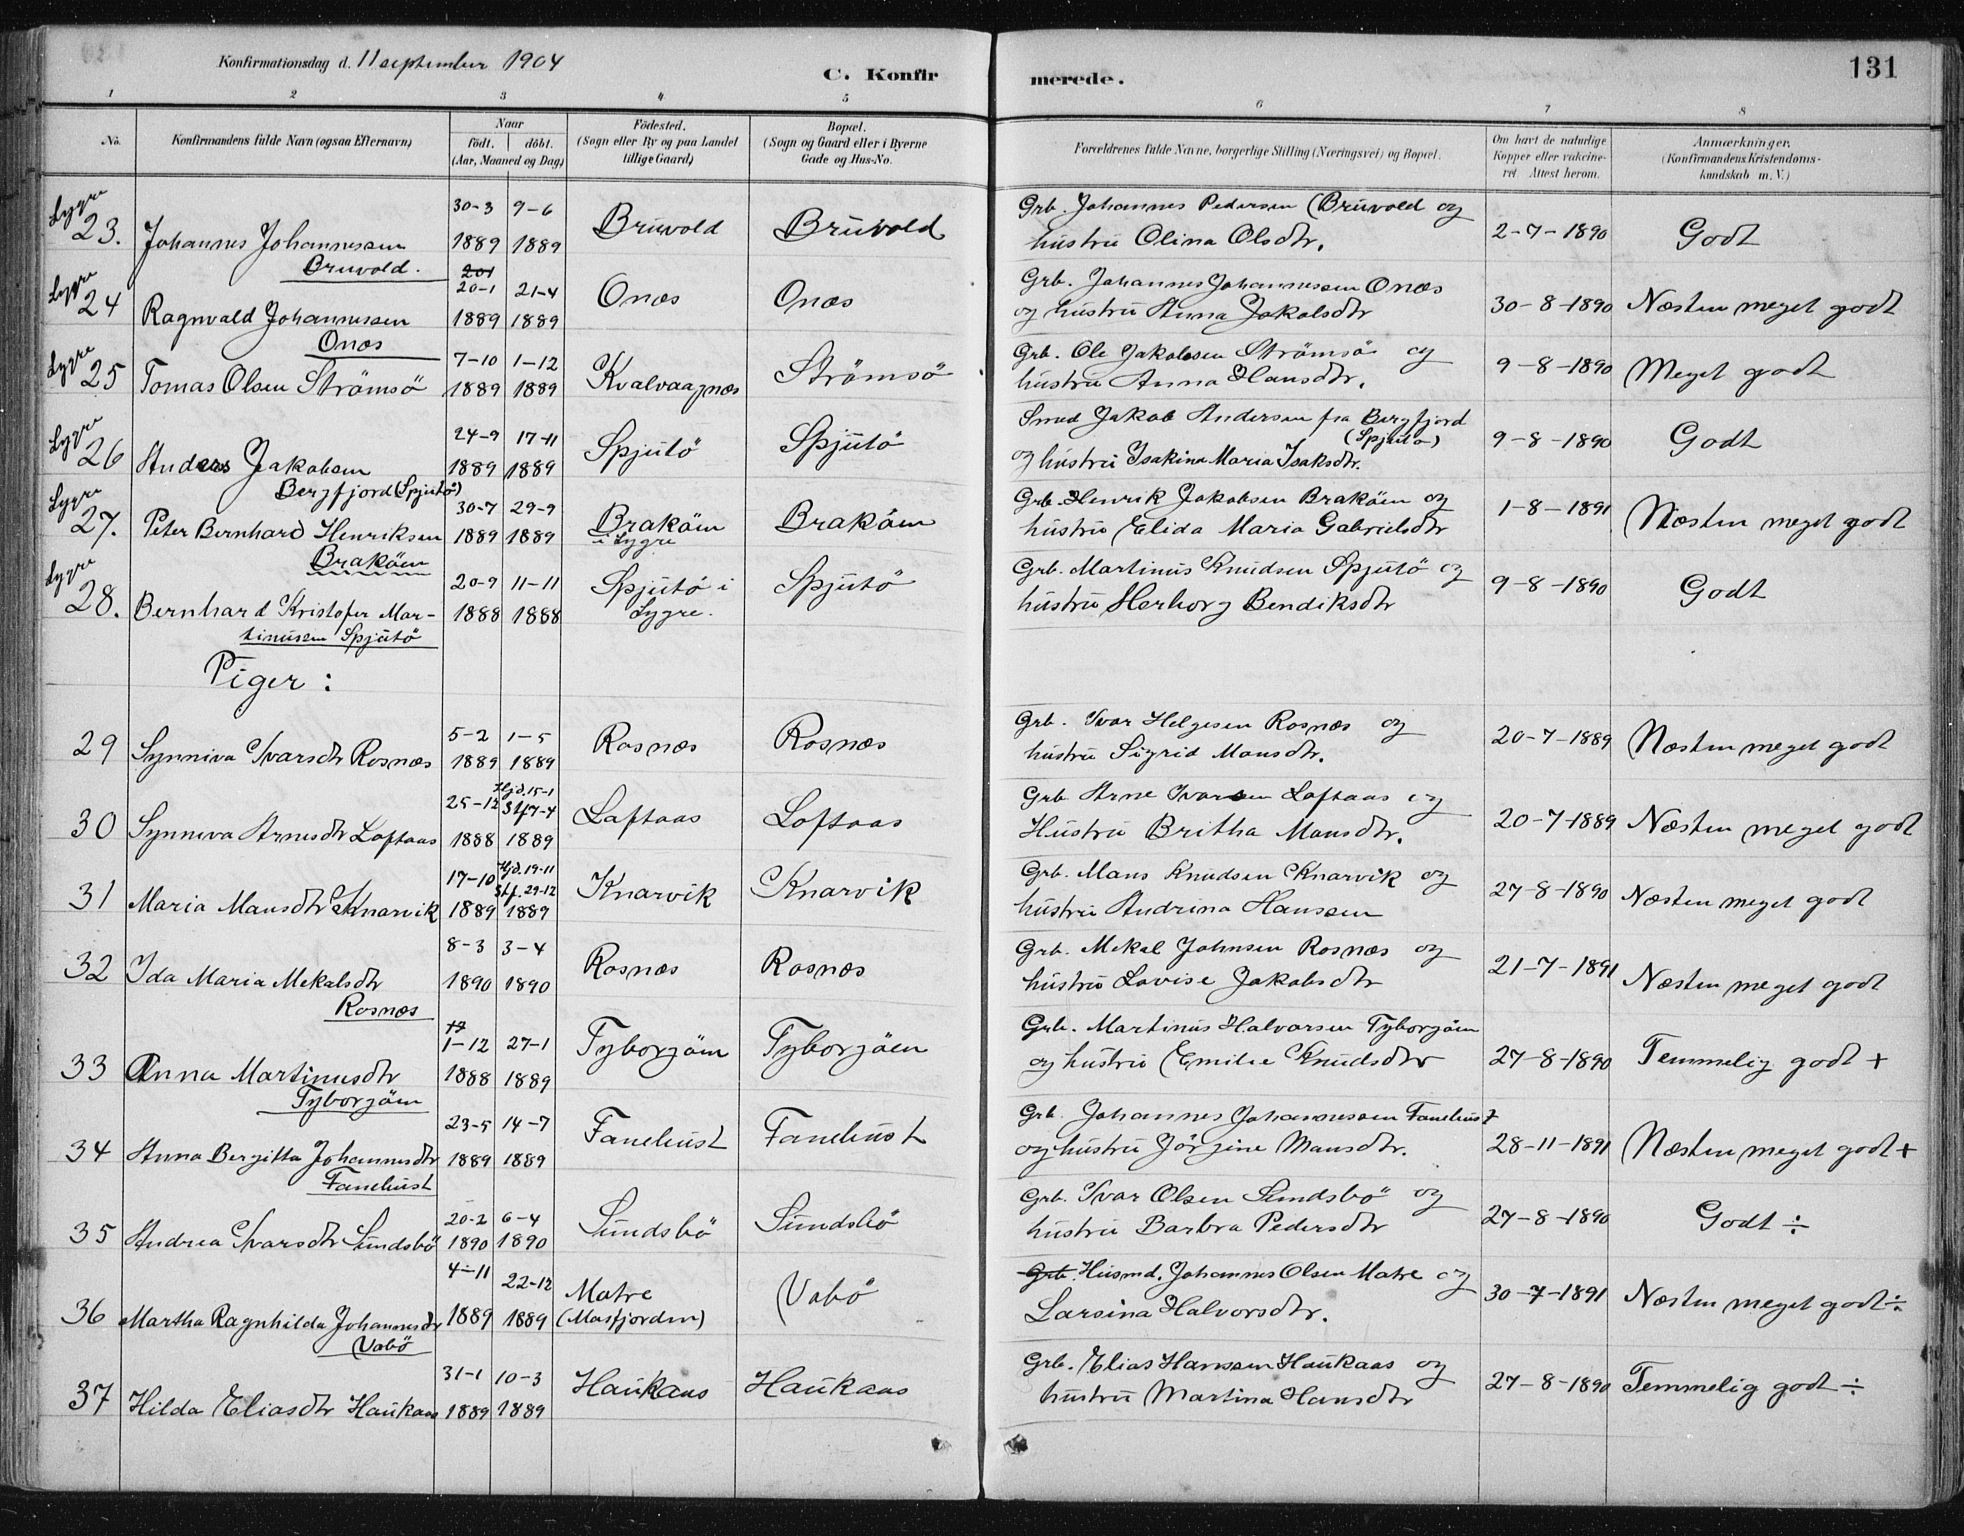 Konfirmationsdag d. 11 september 1904
C. Konfirmerede.
131
1 2 3 4 5 6 7 8
No.
Konfirmandens fulde Navn (ogsaa Efternavn)
Naar
født. døbt.
(Aar, Maaned og Dag)
Fødested.
(Sogn eller By og paa Landet
tillige Gaard)
Bopæl.
(Sogn og Gaard eller i Byerne
Gade og Hus-No.
Forældrenes fulde Navne, borgerlige Stilling (Næringsvei) og Bopæl.
Om havt de naturlige
Kopper eller vakcine-
ret Attest herom.
Anmærkninger.
(Konfirmandens Kristendoms-
kundskab m. V.)
Lygre
30-3 9-6 Grb. Johannes Pedersen Bruvold og
23. Johannes Johannessen 1889 1889 Bruvold Bruvold hustru Olina Olsdtr. 2-7-1890 Godt
Bruvold.
Lygre
20-1 21-4 Grb. Johannes Johannessen Onæs
24 Ragnvald Johannessen 1889 1889 Onæs Onæs og hustru Anna Jakobsdtr 30-8-1890 Næsten meget godt
Onæs
Lygre
7-10 1-12 Grb. Ole Jakobsen Strömsö og
25 Tomas Olsen Strömsö 1889 1889 Kvalvaagnæs Strömsö hustru Anna Hansdtr. 9-8-1890 Meget godt
Lygre
24-9 17-11 Smed Jakob Andersen fra Bergfjord
(Spjutö)
26 Anders Jakobsen 1889 1889 Spjutö Spjutö og hustru Isakina Maria Isaksdtr. 9-8-1890 Godt
Bergfjord (Spjutö)
Lygre
30-7 29-9 Grb. Henrik Jakobsen Braköen og
27. Peter Bernhard Henriksen 1889 1889 Braköen Braköen hustru Elida Maria Gabrielsdtr 1-8-1891 Næsten meget godt
Braköen i Lygre
Lygre
20-9 11-11 Grb. Martinus Knudsen Spjutö og
28. Bernhard Kristofer Mar- 1888 1888 Spjutö i Spjutö hustru Herborg Bendiksdtr 9-8-1890 Godt
tinussen Spjutö Lygre.
Piger:
5-2 1-5 Grb. Ivar Helgesen Rosnæs og
29 Synniva Ivarsdtr Rosnæs 1889 1889 Rosnæs Rosnæs hustru Sigrid Monsdtr. 20-7-1889 Næsten meget godt
25-12 Hjd. 15-1 Stf 7-4 Grb Arne Ivarsen Loftaas og
30 Synneva Arnesdtr Loftaas 1888 1889 Loftaas Loftaas Hustru Britha Mansdtr. 20-7-1889 Næsten meget godt
17-10 Hjd. 19-11 Stf. 29-12 Grb. Mans Knudsen Knarvik og
31 Maria Mansdtr Knarvik 1889 1889 Knarvik Knarvik hustru Andrina Hansen 27-8-1890 Næsten meget godt
8-3 3-4 Grb. Mekal Johnsen Rosnæs og
32 Ida Maria Mekalsdtr 1890 1890 Rosnæs Rosnæs hustru Lovise Jakobsdtr 21-7-1891 Næsten meget godt
Rosnæs
1-12 27-1 Grb. Martinus Halvorsen Tyborgöen
33 Anna Martinusdtr 1888 1889 Tyborgöen Tyborgöen og hustru Emilie Knudsdtr 27-8-1890 Temmelig godt +
Tyborgöen
23-5 14-7 Grb. Johannes Johannessen Fanehust
34 Anna Bergitta Johannesdtr 1889 1889 Fanehust Fanehust og hustru Jörgine Mansdtr. 28-11-1891 Næsten meget godt +
Fanehust
20-2 6-4 Grb. Ivar Olsen Sundsbö og
35 Andrea Ivarsdtr Sundsbö 1890 1890 Sundsbö Sundsbö hustru Barbra Pedersdtr 27-8-1890 Godt ÷
4-11 22-12 Grb. Husmd. Johannes Olsen Matre og
36 Martha Ragnhilda Johannesdtr 1889 1889 Matre (Masfjorden) Vabö Larsina Halvorsdtr. 30-7-1891 Næsten meget godt ÷
Vabö
31-1 10-3 Grb. Elias Hanssen Haukaas og
37 Hilda Eliasdtr Haukaas 1889 1889 Haukaas Haukaas hustru Martina Hansdtr 27-8-1890 Temmelig godt ÷